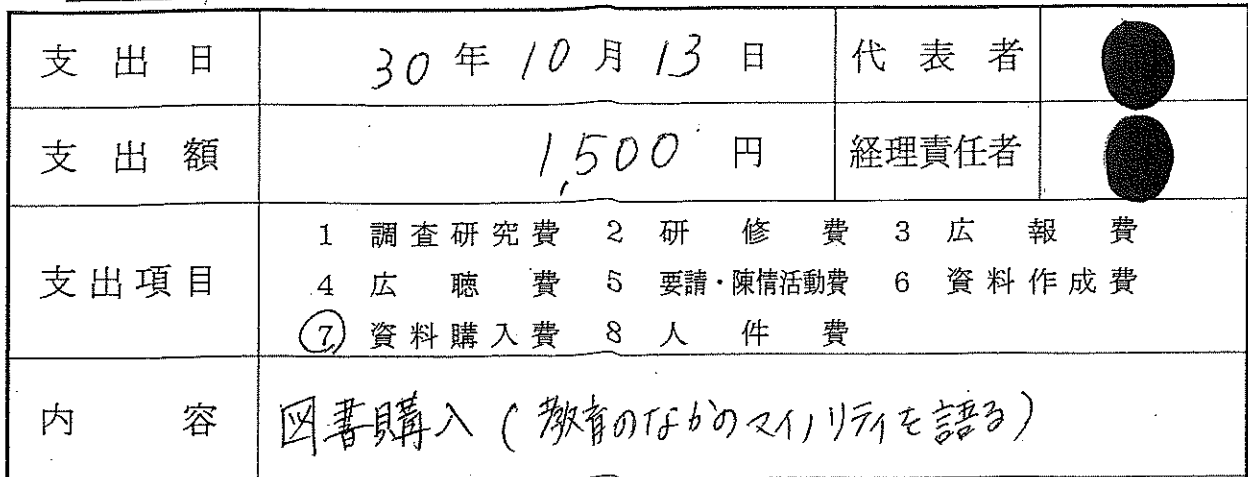 支出日 30年10月13日 代表者
支出額 1,500円 経理責任者
1 調査研究費 2 研修費 3 広報費
支出項目 4 広聴費 5 要請・陳情活動費 6 資料作成費
7 資料購入費 8 人件費
内容 図書購入(教育のなかのマイノリティを語る)